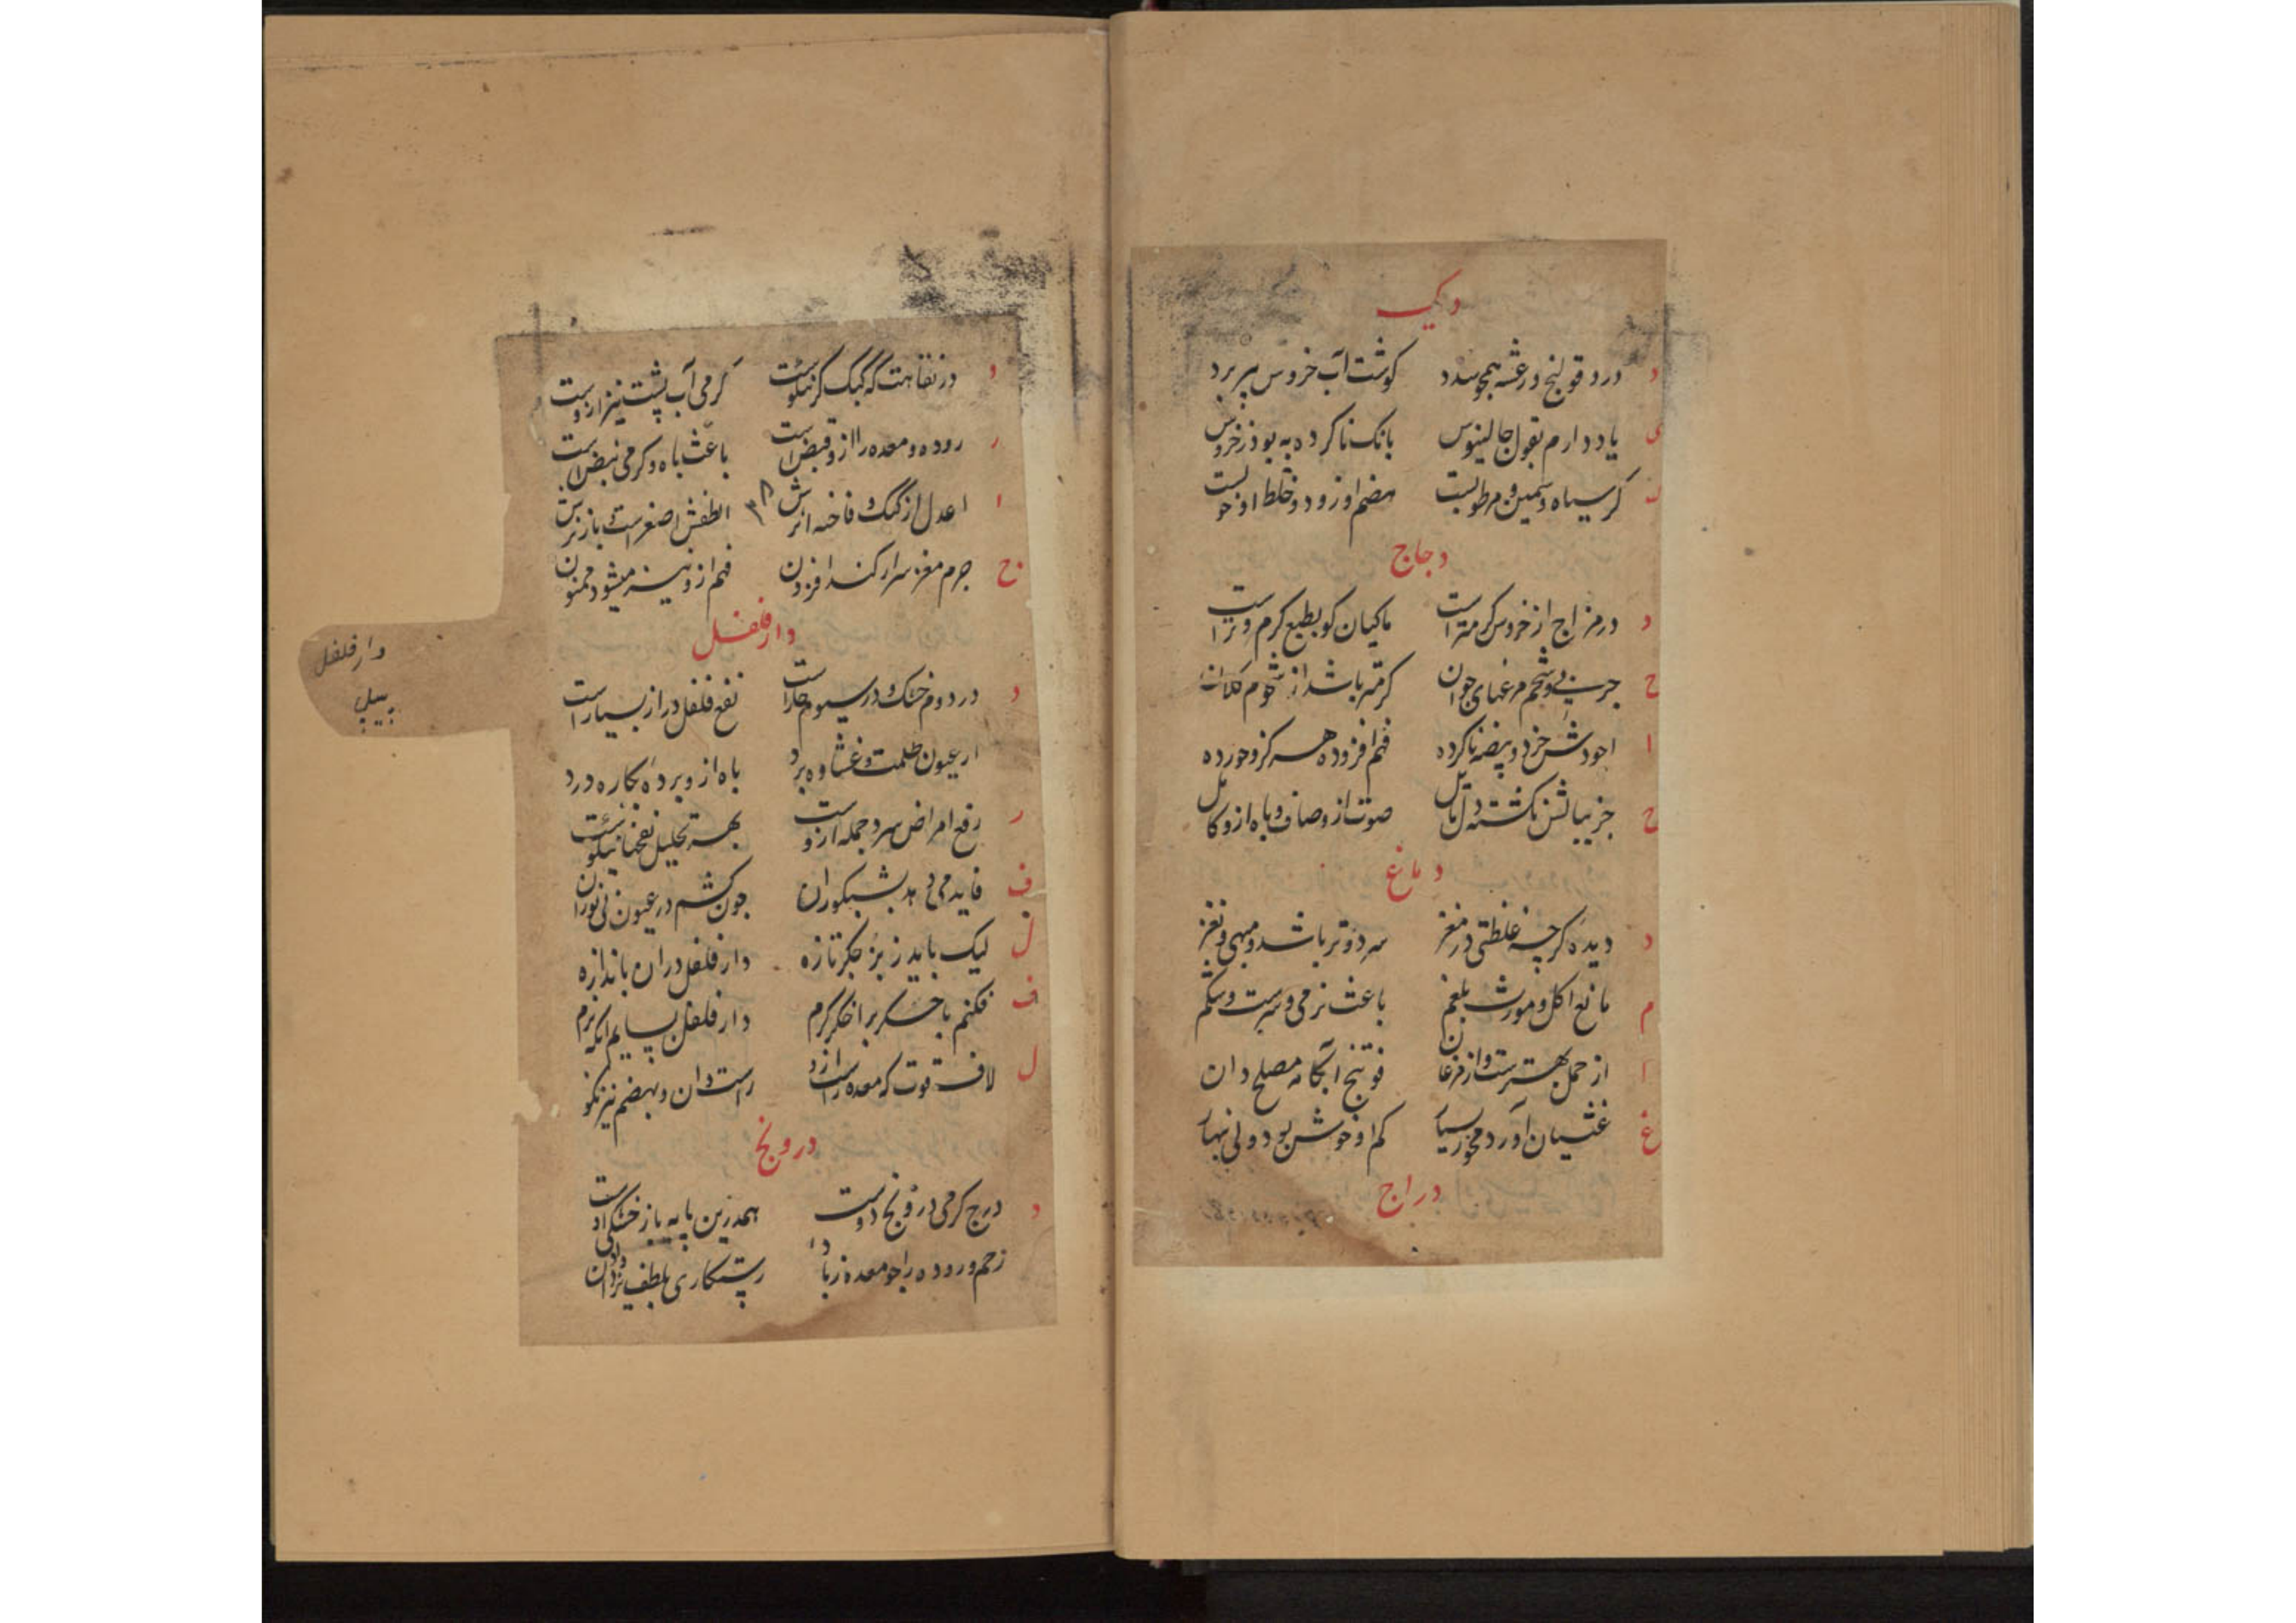 دیک
د درد قولنج و رعشه همچو سدد گوشت آب خروس پیر برد
ی یاد دارم بقول جالینوس بانک ناکرده به بود ز خروس
ک کر سیاه و سمین و مرطوبست هضم او زود و خلط او خوبست
دجاج
د در مزاج از خروس گرمتر است ماکیان کو بطبع گرم و تر است
ج چربی و شحم مرغهای جوان گرمتر باشد از شحوم کلان
ا اجودش خرد و بیضه ناکرده فهم افزوده هر کزو خورده
ج جز بیالش نکشته دل مایل صوت ازو صاف و باه ازو کامل
دماغ
د دیده گرچه غلظتی در مغز سرد و تر باشد و مبهی و نغز
م مانع اکل و مورث بلغم باعث نرمی و سرست و شکم
ا از حمل بهترست و از مرغان فوتنج آبکامه مصلح دان
غ غثیان آورد مخور بسیار کم او خوش بود ولی نهار
دراج
د در نقاهت که کبک گر نیکوست گرمی آب پشت نیز ازوست
ر روده و معده را ازو قبض است باعث باه و گرمی نبض است
ا اعدل از کبک و فاخته اثرش الطفش اصغر است باز نرش
۳۸
ج جرم مغز سرار کند افزون فهم ازو نیز میشود ممنون
دارفلفل
د در دوم خشک و در سیوم حار است نفع فلفل دراز بسیار است
ا از عیون ظلمت و غشاوه برد باه ازو پرده بکاره درد
ر رفع امراض سرد جمله ازوست بهر تحلیل نفخها نیکوست
ف فایده می‌دهد بشبکوران چون کشم در عیون بی نوران
ل لیک باید ز بز جگر تازه دارفلفل دران باندازه
ف فکنم با جگر بر اخگر گرم دارفلفل بسایم آنکه نرم
ل لافت قوت که معده را زد راست دان و بهضم نیز نکو
درونج
د درج گرمی درونج دوست همدرین پایه باز خشکی اوست
زحم و روده را چو معده ز باد رستگاری بلطف یزدان داد
دار فلفل
پیپل